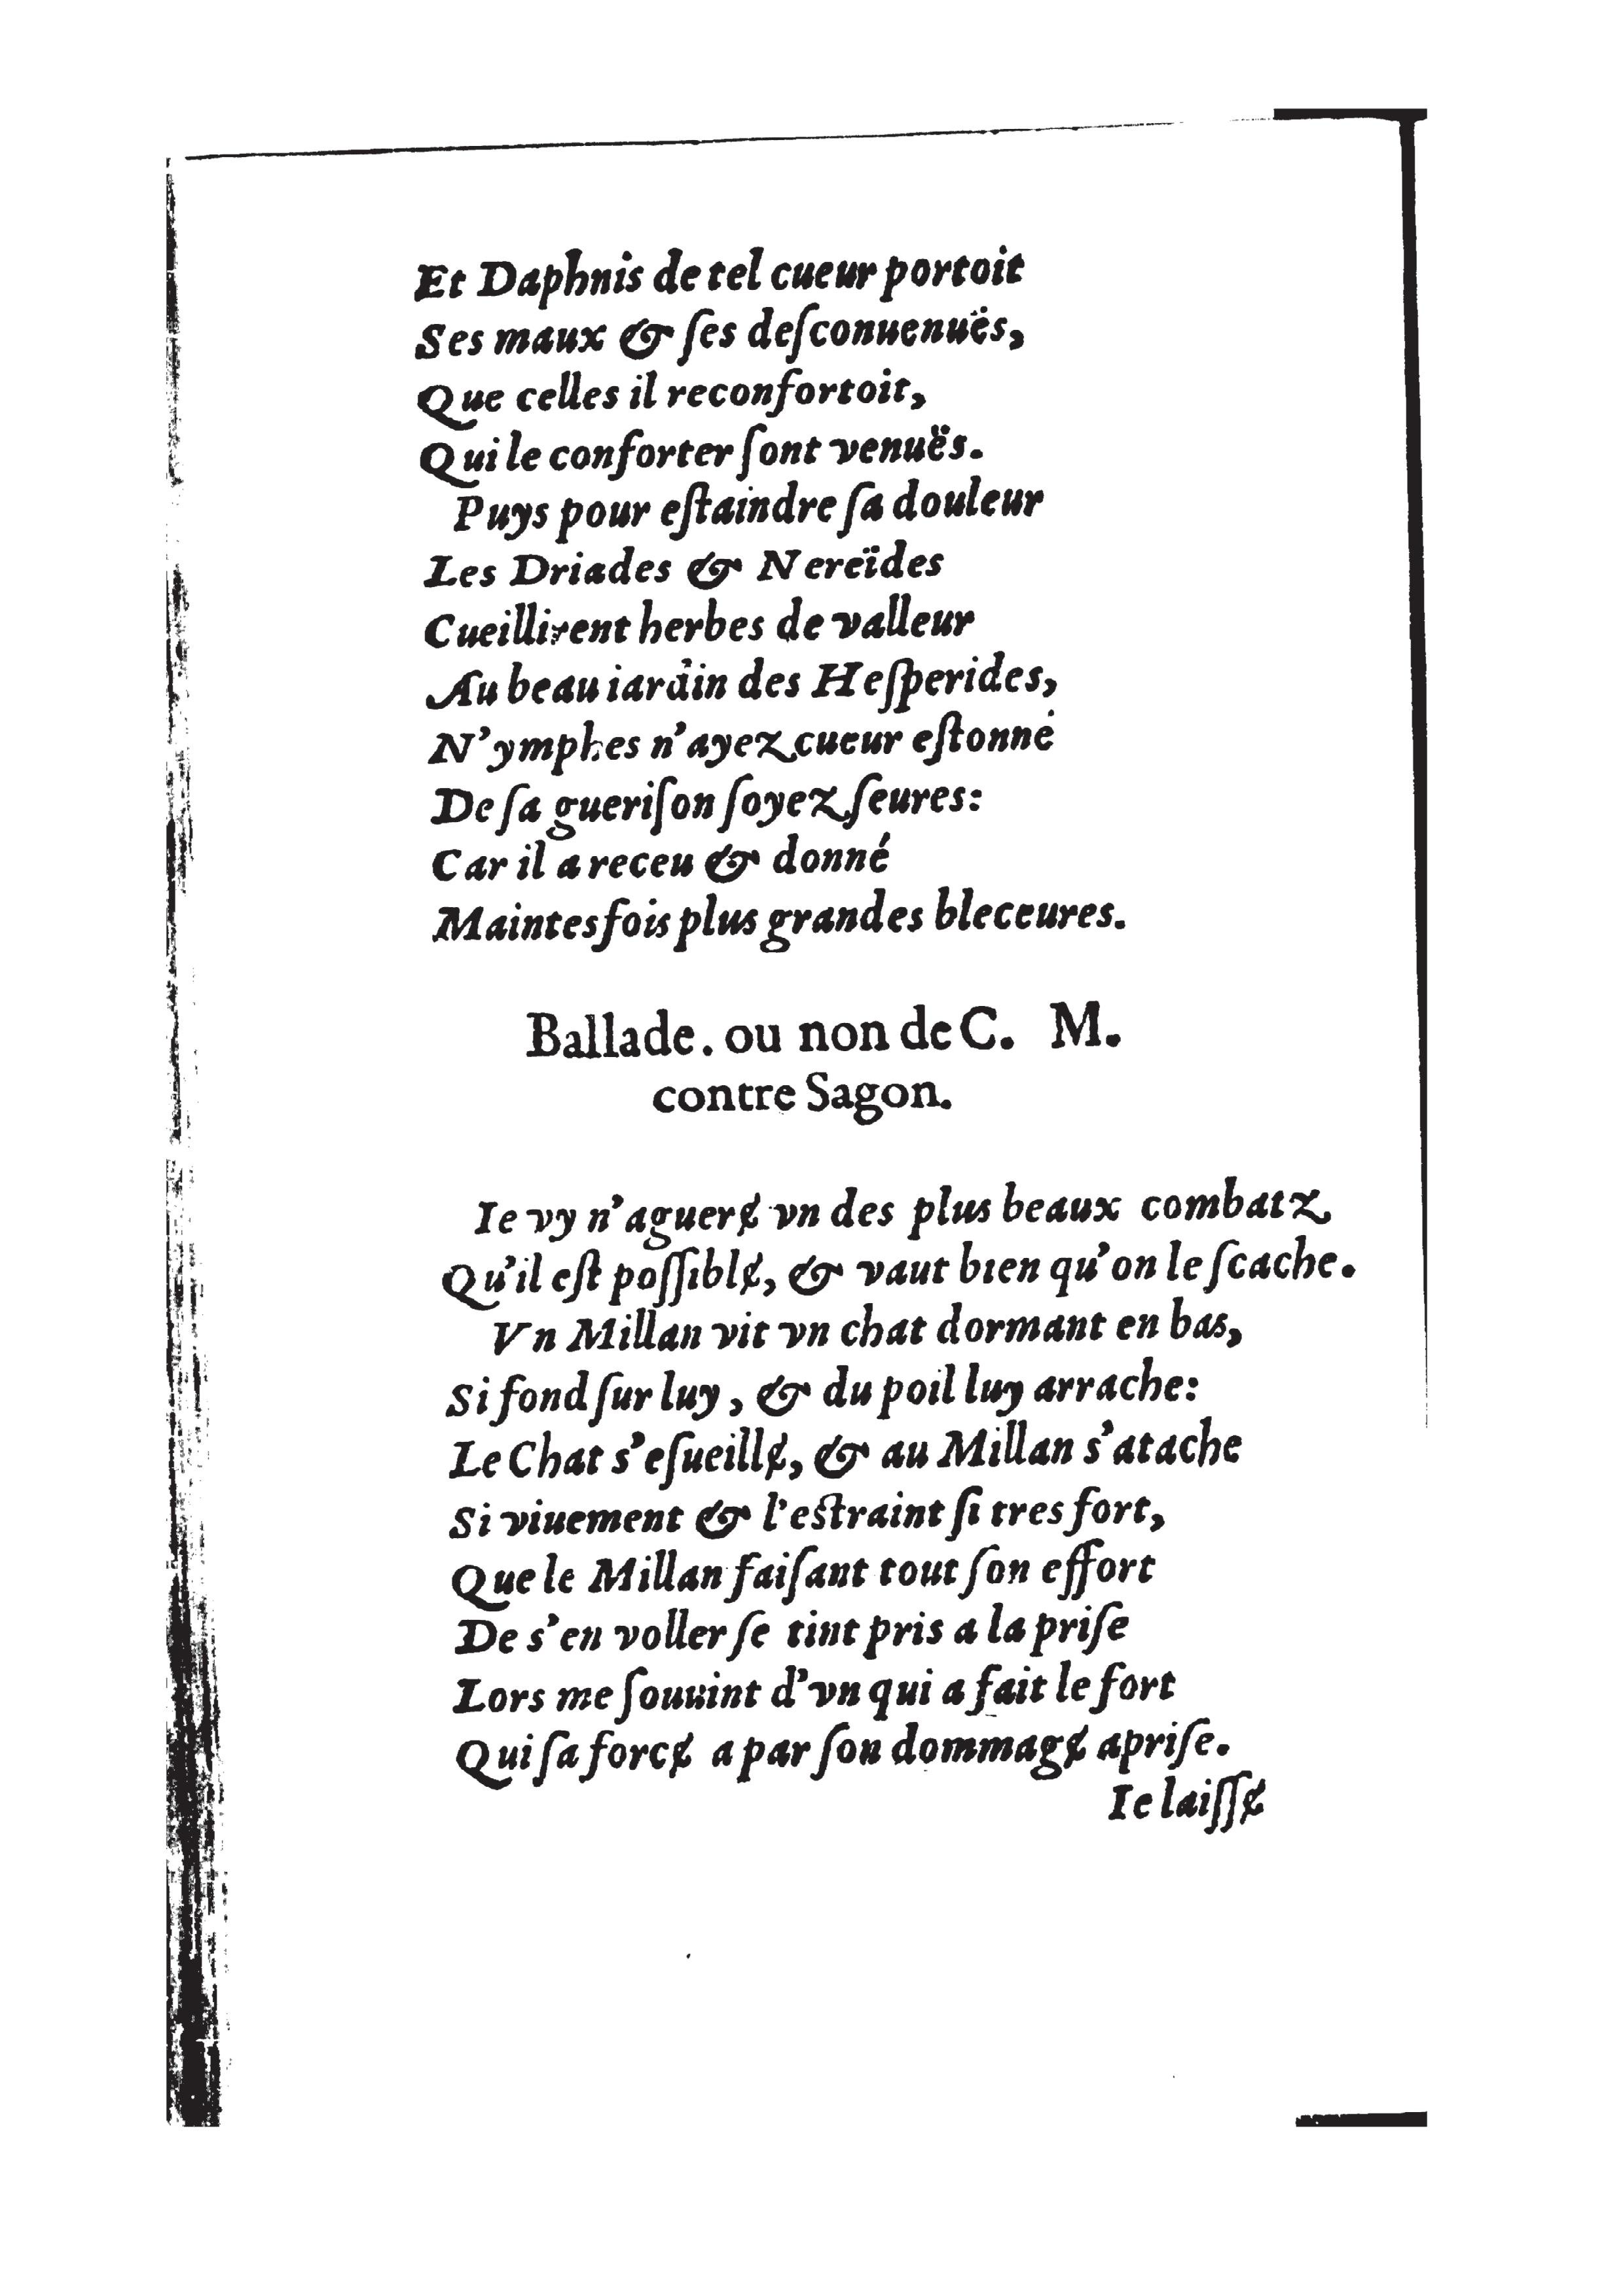 Et Daphnis de tel cueur portoit
Ses maux & ſes deſconuenuës,
Que celles il reconfortoit,
Qui le conforter ſont venuës.
Puys pour eſtaindre ſa douleur
Les Driades & Nereïdes
Cueillirent herbes de valleur
Au beau iardin des Heſperides,
N'ymphes n'ayez cueur eſtonné
De ſa gueriſon ſoyez ſeures:
Car il a receu & donné
Maintesfois plus grandes bleceures.
Ballade. ou non de C. M.
contre Sagon.
Ie vy n'aguerɇ vn des plus beaux combatz
Qu'il eſt poſſiblɇ, & vaut bien qu'on le ſcache.
Vn Millan vit vn chat dormant en bas,
Si fond ſur luy, & du poil luy arrache:
Le Chat s'eſueillɇ, & au Millan s'atache
Si viuement & l'eſtraint ſi tres fort,
Que le Millan faiſant tout ſon effort
De s'en voller ſe tint pris a la priſe
Lors me ſouuint d'vn qui a fait le fort
Qui ſa forcɇ a par ſon dommagɇ apriſe.
Ie laiſſɇ